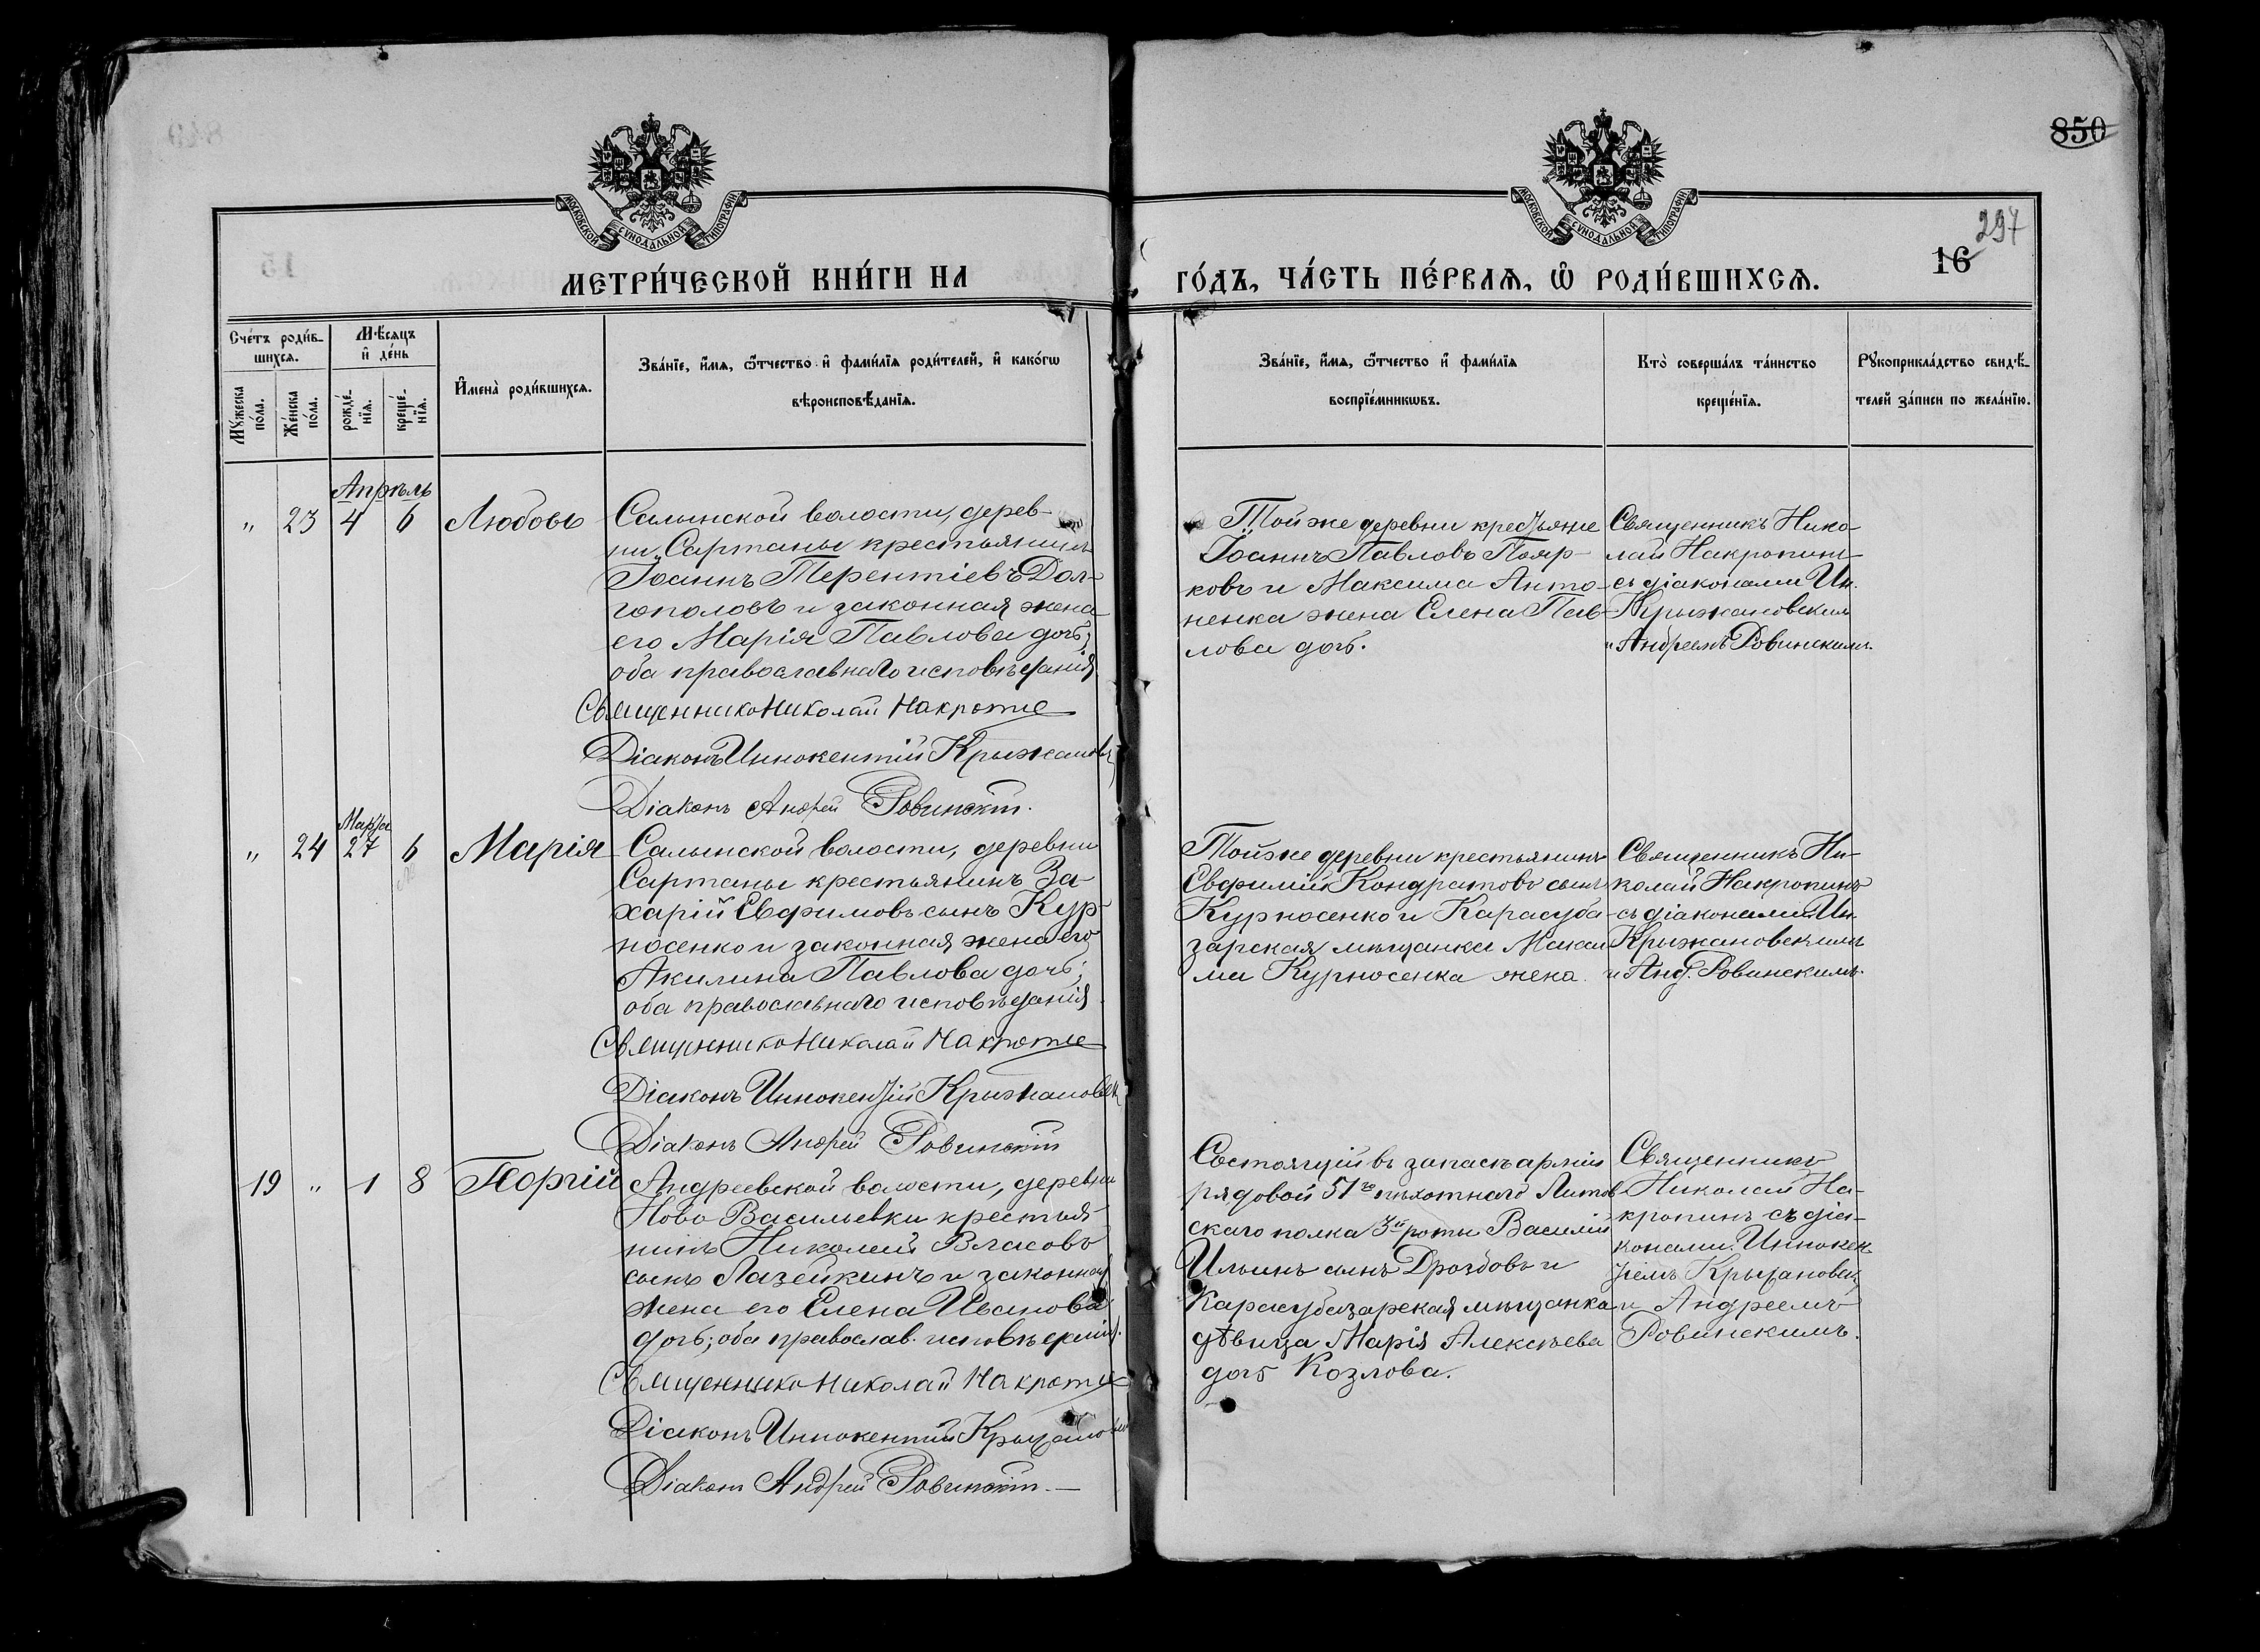 850
МОСКОВСКОЙ СѴНОДАЛЬНОЙ ТИПОГРАФІИ.
МОСКОВСКОЙ СѴНОДАЛЬНОЙ ТИПОГРАФІИ.
297
16
МЕТРИ́ЧЕСКОЙ КНИ́ГИ НА
ГО́ДЪ, ЧА́СТЬ ПЕ́РВАѦ, Ѡ҆ РОДИ́ВШИХСѦ.
Сче́тъ роди́в-
шихсѧ.
Мѣ́сѧцъ
и҆ де́нь
Мꙋ́жеска
по́ла.
Же́нска
по́ла.
рожде́-
нїѧ.
креще́-
нїѧ.
И҆мена̀ роди́вшихсѧ.
Зва́нїе, и҆́мѧ, ѻ҆́тчество и҆ фами́лїѧ роди́телей, и҆ како́гѡ
вѣроисповѣ́данїѧ.
Зва́нїе, и҆́мѧ, ѻ҆́тчество и҆ фами́лїѧ
воспрїе́мникѡвъ.
Кто̀ соверша́лъ та́инство
креще́нїѧ.
Рꙋкоприкла́дство свидѣ́-
телей за́писи по жела́нїю.
Апрѣль
" 23 4 6 Любовь
Салынской волости, дерев-
ни Сартаны крестьянинъ
Іоаннъ Терентіевъ Дол-
гополовъ и законная жена
его Марія Павлова дочь;
оба православнаго исповѣданія
Священникъ Николай Накропинъ
Діаконъ Иннокентій Крыжановск
Діаконъ Андрей Ровинскій.
Той же деревни крестьяне
Іоаннъ Павловъ Пояр-
ковъ и Максима Анто-
ненка жена Елена Пав-
лова дочь.
Священникъ Нико-
лай Накропинъ
съ діаконами Ин.
Крыжановскимъ
и Андреемъ Ровинскимъ.
Марта
" 24 27 6 Марія
Салынской волости, деревни
Сартаны крестьянинъ За-
харій Евфимовъ сынъ Кур-
носенко и законная жена его
Акилина Павлова дочь;
оба православнаго исповѣданія
Священникъ Николай Накропинъ
Діаконъ Иннокентій Крыжановск
Діаконъ Андрей Ровинскій
Той же деревни крестьянинъ
Евфимій Кондратовъ сынъ
Курносенко и Карасуба-
зарская мѣщанка
Курносенка жена.
Священникъ Ни-
колай Накропинъ
съ діаконами Ин.
Крыжановскимъ
и Анд. Ровинскимъ.
19 " 1 8 Георгій
Андреевской волости, деревни
Ново Васильевки крестья-
нинъ Николай Власовъ
сынъ Лазейкинъ и законная
жена его Елена Иванова
дочь; оба православ. исповѣданія.
Священникъ Николай Накропинъ
Діаконъ Иннокентій Крыжановск
Діаконъ Андрей Ровинскій.
Состоящій въ запасѣ арміи
рядовой 51го пѣхотнаго Литов-
скаго полка 3й роты Василій
Ильинъ сынъ Дроздовъ и
Карасубазарская мѣщанка
дѣвица Марія Алексѣева
дочь Козлова.
Священникъ
Николай На-
кропинъ съ діа-
конами: Иннокен-
тіемъ Крыжановск.
и Андреемъ
Ровинскимъ.